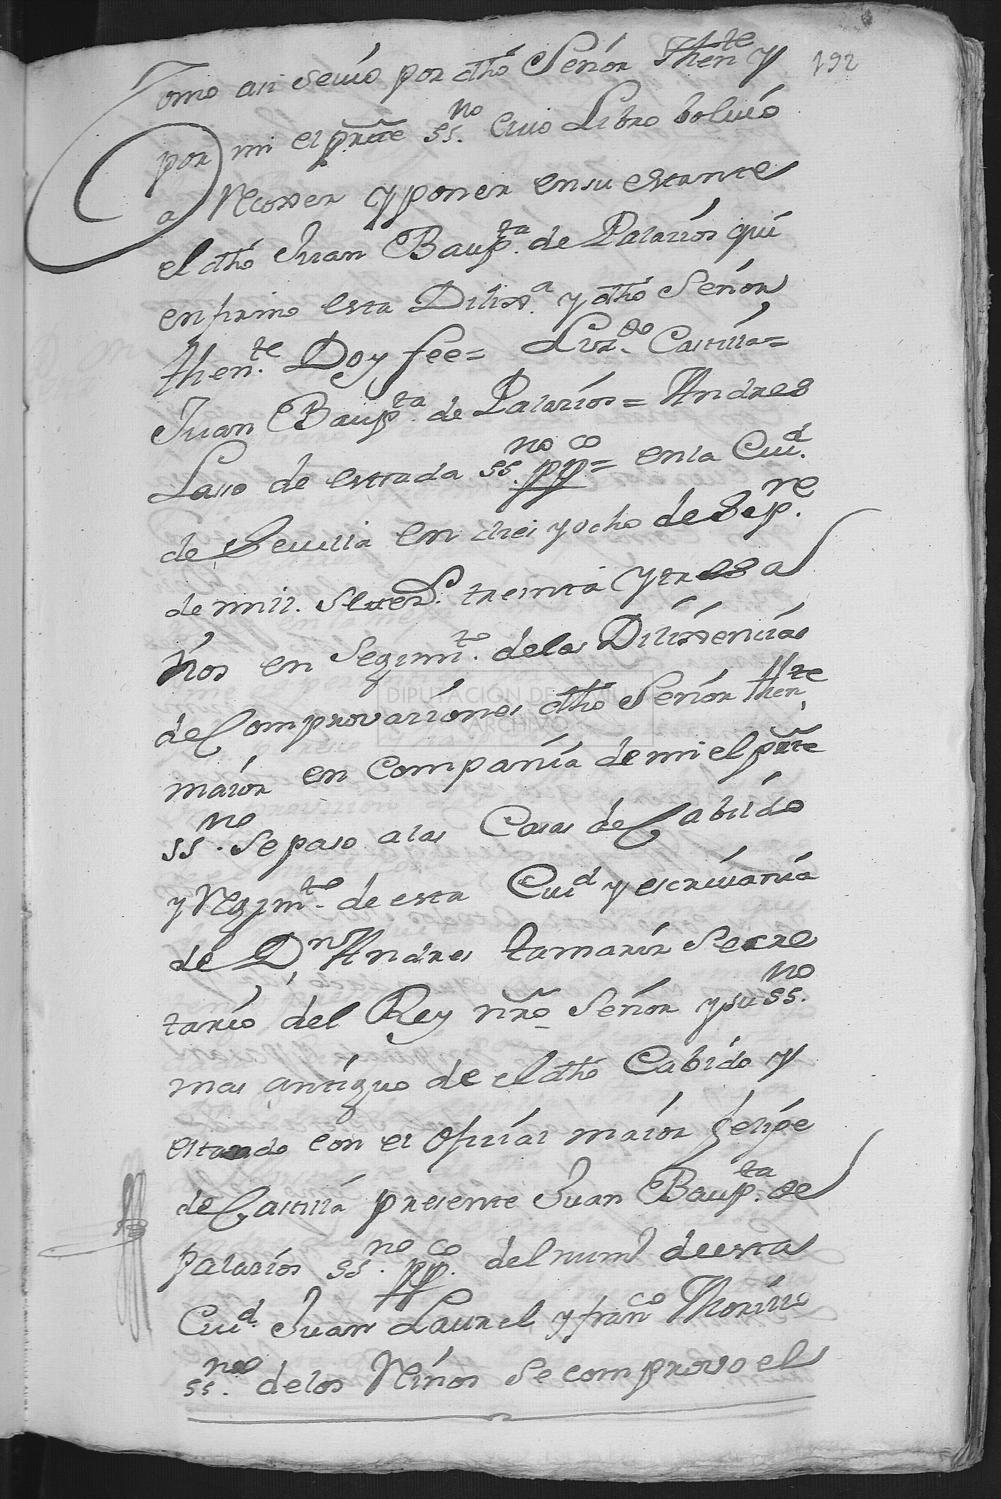 192
Como asi se vio por dho Señor Thente y
por mi el preste ssno. Cuio Libro boluio
a Recoxer y poner en su estante
el dho Juan Baupta. de Palazios qui
en firmo esta Dilixa. y dho Señor
thente. Doy fee= Lizdo. Castilla=
Juan Baupta. de Palazios= Andres
Laso de estrada ssno. ppco= en la Ciud.
de Seuilla en diez y ocho de Sepre.
de mill. setezs. treinta y tres a
ños en Segimto. de las Dilixencias
de Comprovaziones dho Señor thente
maior en Compañia de mi el preste
ssno. Se paso a las Casas de Cabildo
y Rexmto. de esta Ciud y escriuania
de Dn Andres tamariz Secre
tario del Rey nro Señor y su ssno.
mas antiguo de el dho Cabido y
estando con el ofizial maior felipe
de Castilla presente Juan Baupta. de
Palazios ssno. ppco. del numo de esta
Ciud. Juan Laurel y franco Morillo
ssnos. de los Niños se comprovo el
DIPUTACIÓN DE
ARCHIVO